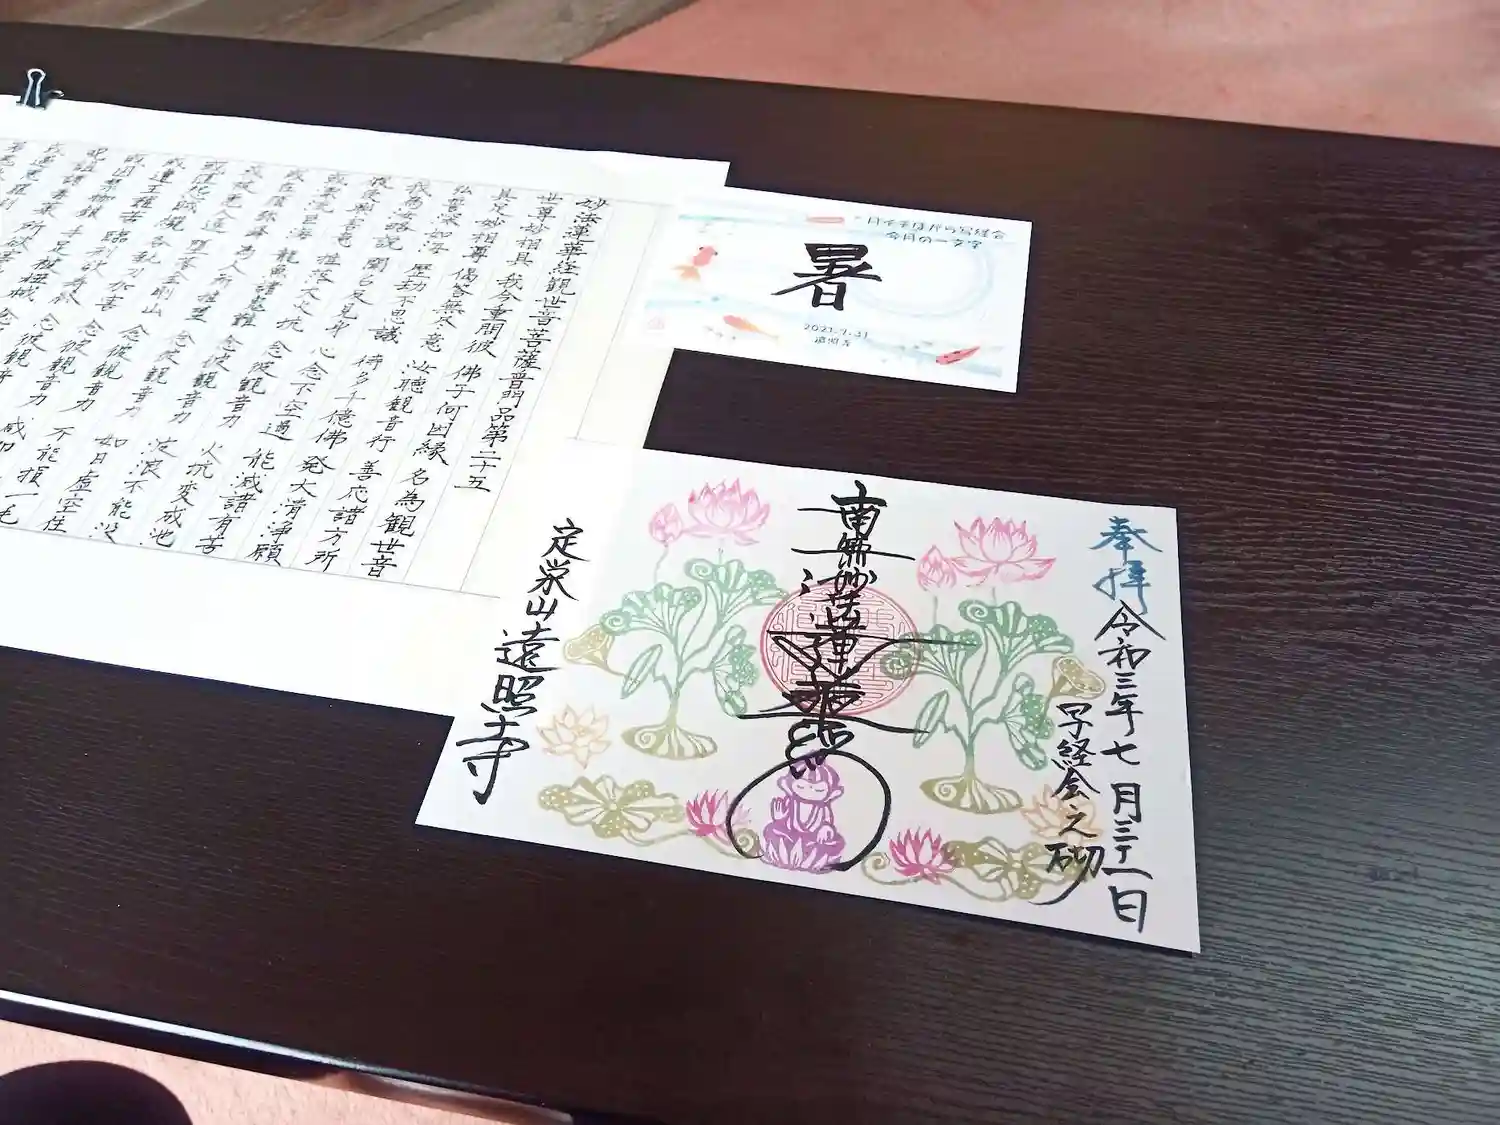 妙法蓮華経観世音菩薩普門品第二十五
世尊妙相具 我今重問彼 佛子何因縁 名為観世音
具足妙相尊 偈答無尽意 汝聴観音行 善応諸方所
弘誓深如海 歴劫不思議 侍多千億佛 発大清淨願
我為汝略説 聞名及見身 心念不空過 能滅諸有苦
假使興害意 推落大火坑 念彼観音力 火坑変成池
或漂流巨海 龍魚諸鬼難 念彼観音力 波浪不能没
或在須弥峯 為人所推堕 念彼観音力 如日虚空住
或被悪人逐 堕落金剛山 念彼観音力 不能損一毛
或値怨賊繞 各執刀
或遭王難苦 臨刑欲寿終 念彼観音力
或囚禁枷鎖 手足被杻械 念彼観音
呪詛諸毒薬 所欲害
暑
今月の一文字
2021.7.31
遠照寺
奉拝
令和三年七月三十一日
写経会之砌
南無妙法蓮華経
定栄山遠照寺